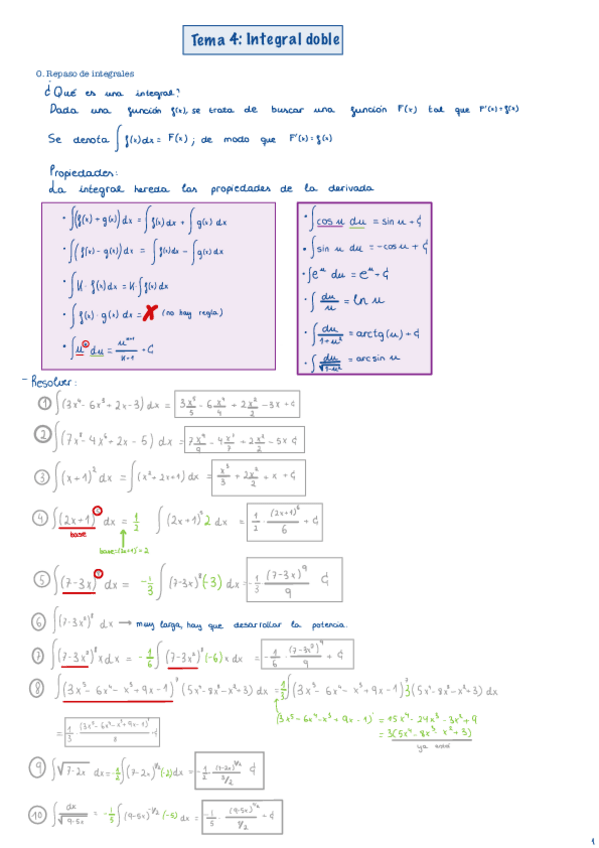 Tema 4: Integral doble
0. Repaso de integrales
¿Qué es una integral?
Dada una función f(x), se trata de buscar una función F(x) tal que F'(x)=f(x)
Se denota ∫f(x)dx = F(x); de modo que F'(x)=f(x)
Propiedades:
La integral hereda las propiedades de la derivada
• ∫(f(x)+g(x))dx = ∫f(x)dx + ∫g(x)dx
• ∫(f(x)-g(x))dx = ∫f(x)dx - ∫g(x)dx
• ∫K·f(x)dx = K·∫f(x)dx
• ∫f(x)·g(x)dx = X (no hay regla)
• ∫cos u du = sin u + C
• ∫sin u du = -cos u + C
• ∫eᵘ du = eᵘ + C
• ∫du/u = ln u
• ∫du/1+u² = arctg(u) + C
• ∫du/√1-u² = arcsin u
- Resolver:
① ∫(3x⁴-6x³+2x-3)dx = 3x⁵/5 - 6x⁴/4 + 2x²/2 - 3x + C
② ∫(7x⁸-4x⁶+2x-5)dx = 7x⁹/9 - 4x⁷/7 + 2x²/2 - 5x + C
③ ∫(x+1)² dx = ∫(x²+2x+1)dx = x³/3 + 2x²/2 + x + C
④ ∫(2x+1)⁵ dx = 1/2 ∫(2x+1)⁵ 2 dx = 1/2 · (2x+1)⁶/6 + C
base
base=(2x+1)'=2
⑤ ∫(7-3x)⁸ dx = -1/3 ∫(7-3x)⁸(-3)dx = -1/3 · (7-3x)⁹/9 + C
⑥ ∫(7-3x²)⁸ dx → muy larga, hay que desarrollar la potencia.
⑦ ∫(7-3x²)⁸x dx = -1/6 ∫(7-3x²)⁸(-6)x dx = -1/6 · (7-3x²)⁹/9 + C
⑧ ∫(3x⁵-6x⁴-x³+9x-1)⁷(5x⁴-8x³-x²+3)dx = 1/3 ∫(3x⁵-6x⁴-x³+9x-1)⁷ 3(5x⁴-8x³-x²+3)dx
(3x⁵-6x⁴-x³+9x-1)' = 15x⁴-24x³-3x²+9
= 3(5x⁴-8x³-x²+3)
ya está
= 1/3 · (3x⁵-6x⁴-x³+9x-1)⁸/8 + C
⑨ ∫√7-2x dx = -1/2 ∫(7-2x)^1/2 (-2)dx = -1/2 · (7-2x)^3/2/3/2 C
⑩ ∫dx/√9-5x = -1/5 ∫(9-5x)^-1/2 (-5)dx = -1/5 · (9-5x)^1/2/1/2 + C
1